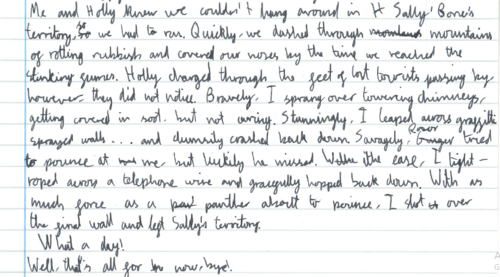 Me and Holly knew we couldn't hang around in H Sally Bone's
territory, so we had to run. Quickly, we dashed through mountains
of rotting rubbish and covered our noses by the time we reached the
stinking sewers. Holly charged through the feet of lost tourists passing by
however they did not notice. Bravely, I sprang over towering chimneys,
getting covered in soot, but not caring. Stunningly, I leaped across graffiti
sprayed walls... and clumsily crashed back down. Savagely, Ginger tried
to pounce at me, but luckily he missed. With ease, I tight-
roped across a telephone wire and gracefully hopped back down. With as
much force as a panther about to pounce, I shot over
the final wall and left Sally's territory.
What a day!
Well, that's all for now, bye!